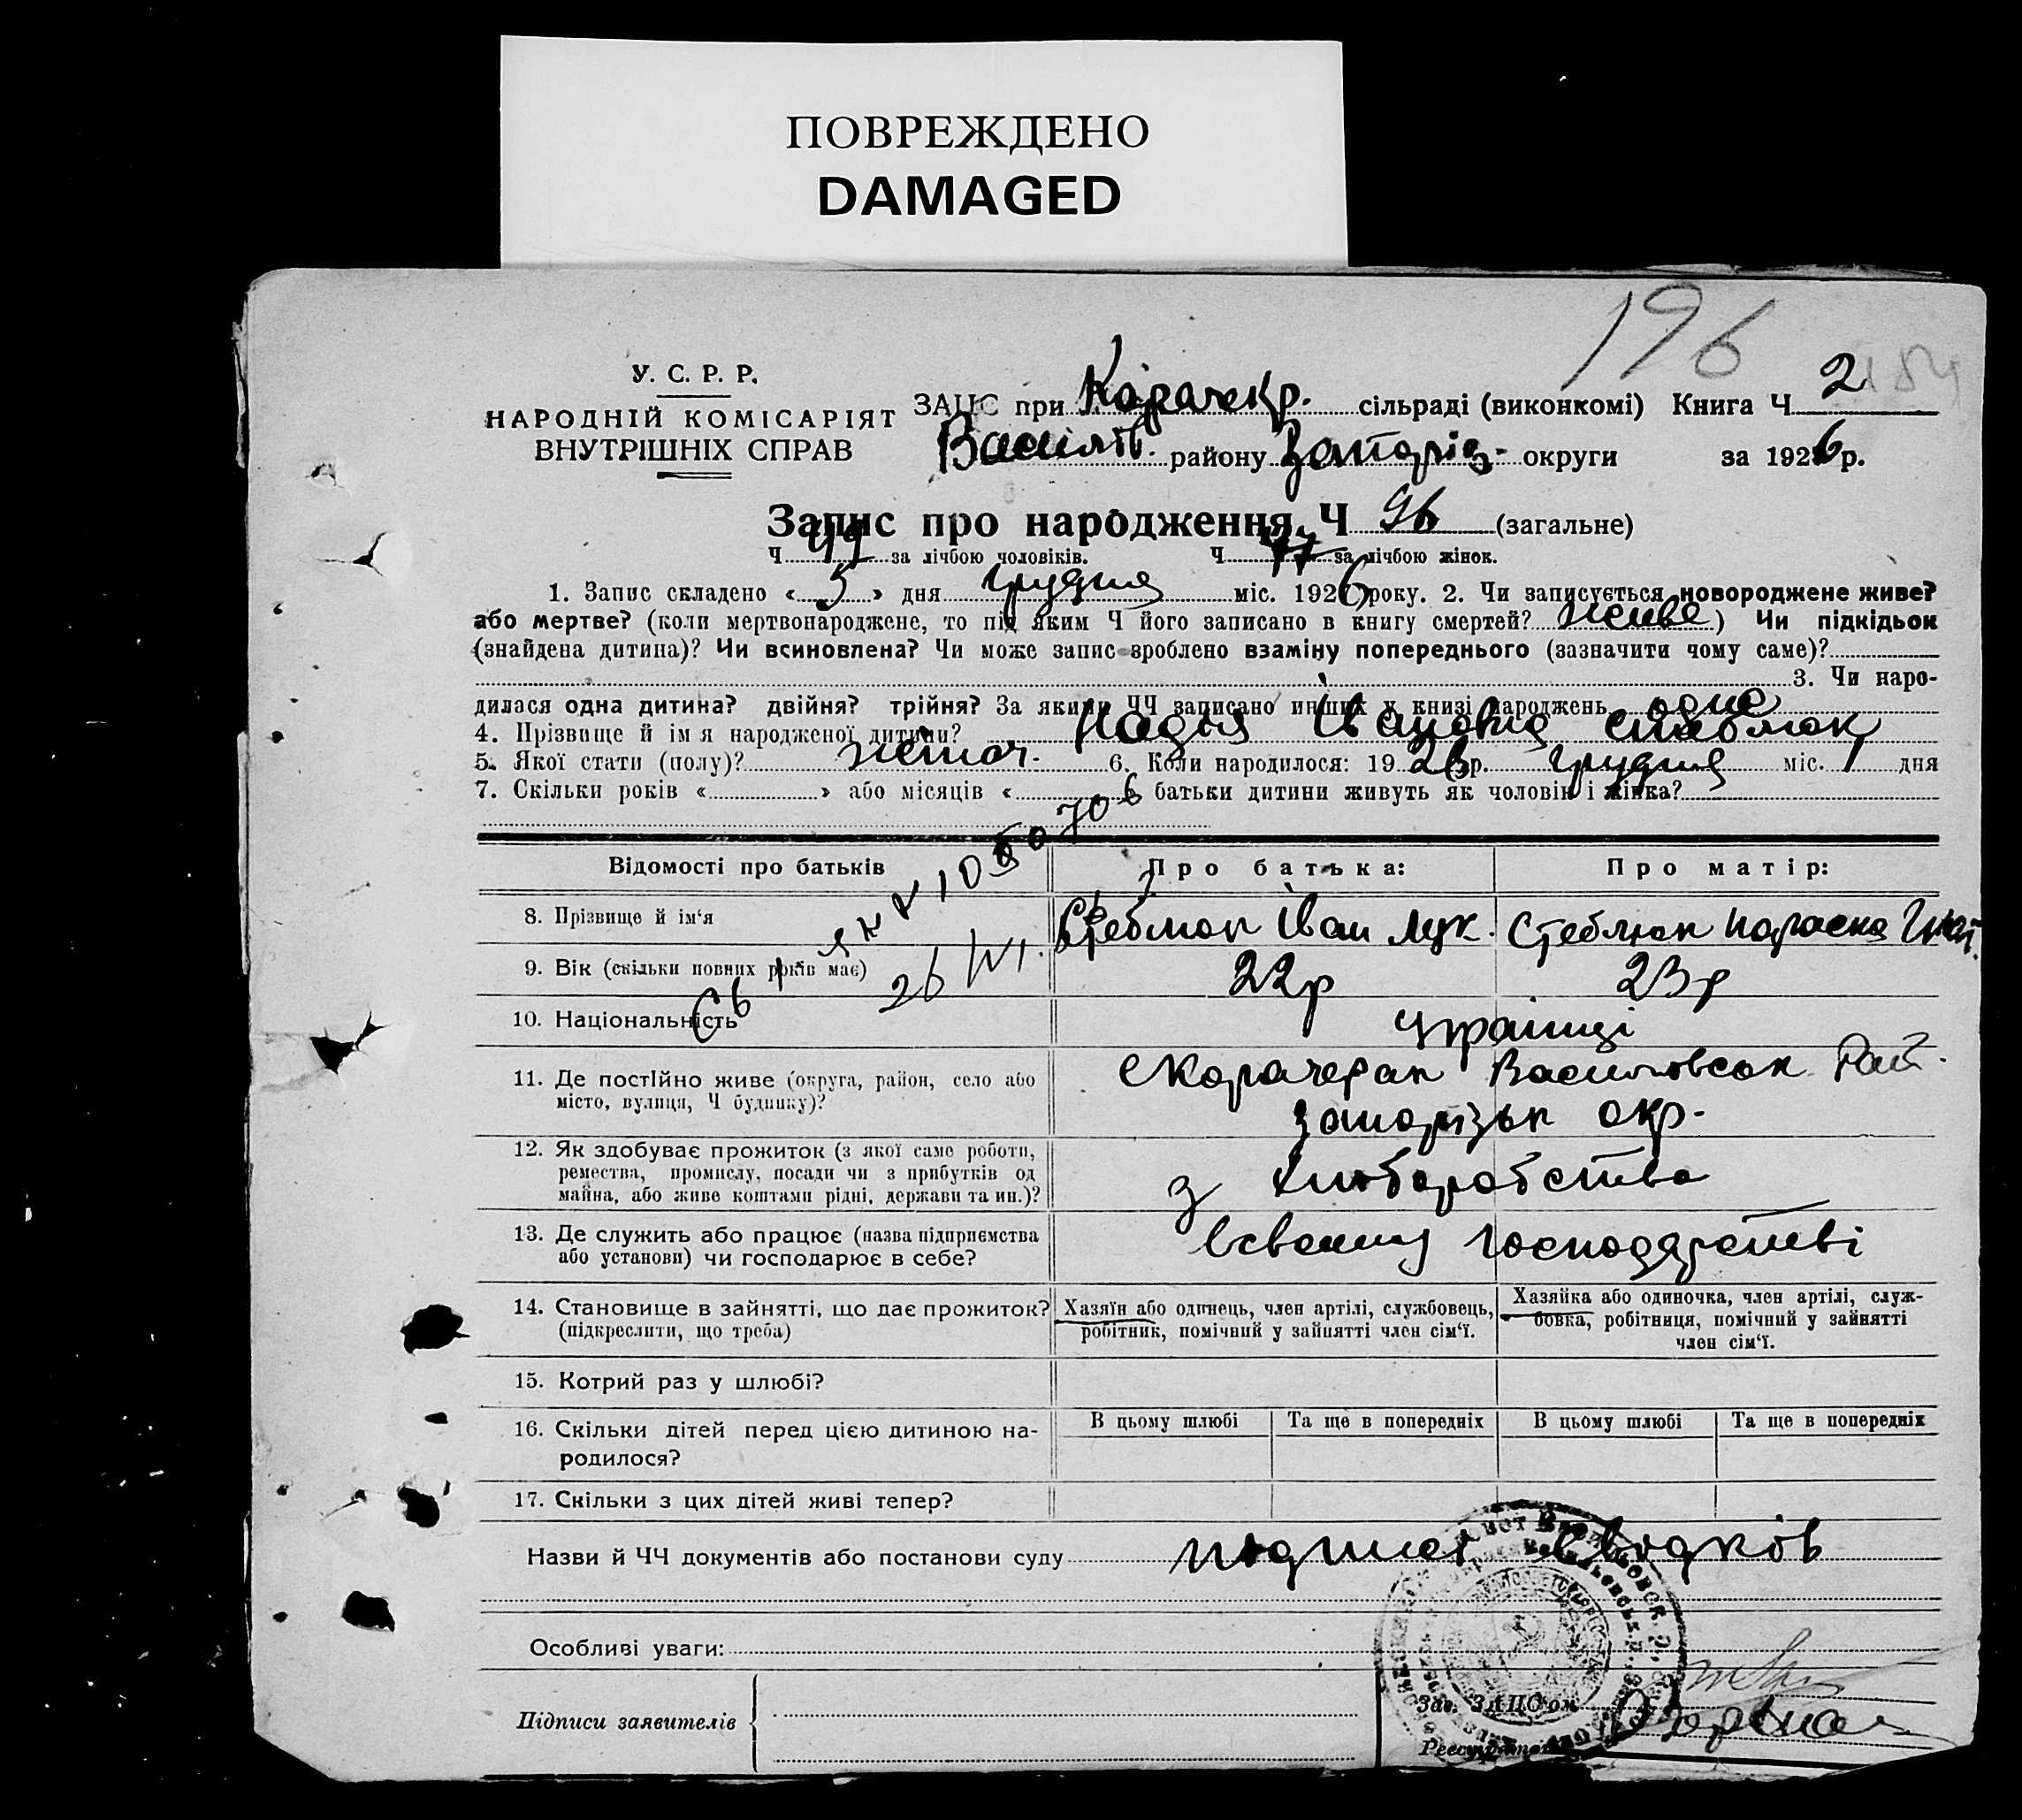 ПОВРЕЖДЕНО
DAMAGED
196
У. С. Р. Р.
НАРОДНІЙ КОМІСАРІЯТ
ВНУТРІШНІХ СПРАВ
ЗАЦС при Карачекр. сільраді (виконкомі) Книга Ч 2 184
Василів. району Запоріз. округи за 1926 р.
Запис про народження Ч 96 (загальне)
Ч 49 за лічбою чоловіків. Ч 47 за лічбою жінок.
1. Запис складено «5» дня грудня міс. 1926 року. 2. Чи записується новороджене живе?
або мертве? (коли мертвонароджене, то під яким Ч його записано в книгу смертей? живе) Чи підкідьок
(знайдена дитина)? Чи всиновлена? Чи може запис зроблено взаміну попереднього (зазначити чому саме)?
3. Чи наро-
дилася одна дитина? двійня? трійня? За якими ЧЧ записано инших у книзі народжень одна
4. Прізвище й імя народженої дитини? Надія Івановна Стеблюк
5. Якої стати (полу)? жіноч. 6. Коли народилося: 1926 р. грудня міс. 1 дня
7. Скільки років « » або місяців « » батьки дитини живуть як чоловік і жінка?
Відомості про батьків Про батька: Про матір:
8. Прізвище й ім'я Стеблюк Іван Лук. Стеблюк Параска
9. Вік (скільки повних років має) 22р 23р
10. Національність українці
11. Де постійно живе (округа, район, село або
місто, вулиця, Ч будинку)?
с Карачекрак Васильовськ рай.
Запорізьк окр.
12. Як здобуває прожиток (з якої саме роботи,
ремества, промислу, посади чи з прибутків од
майна, або живе коштами рідні, держави та ин.)?
з хліборобства
13. Де служить або працює (назва підприємства
або установи) чи господарює в себе?
в своему господарстві
14. Становище в зайнятті, що дає прожиток?
(підкреслити, що треба)
Хазяїн або одинець, член артілі, службовець,
робітник, помічний у зайнятті член сім'ї.
Хазяйка або одиночка, член артілі, служ-
бовка, робітниця, помічний у зайнятті
член сім'ї.
15. Котрий раз у шлюбі?
16. Скільки дітей перед цією дитиною на-
родилося?
В цьому шлюбі Та ще в попередніх В цьому шлюбі Та ще в попередніх
17. Скільки з цих дітей живі тепер?
Назви й ЧЧ документів або постанови суду підписи свідків
Особливі уваги:
Підписи заявителів
Зав. ЗАЦС'ом
Реєстратор